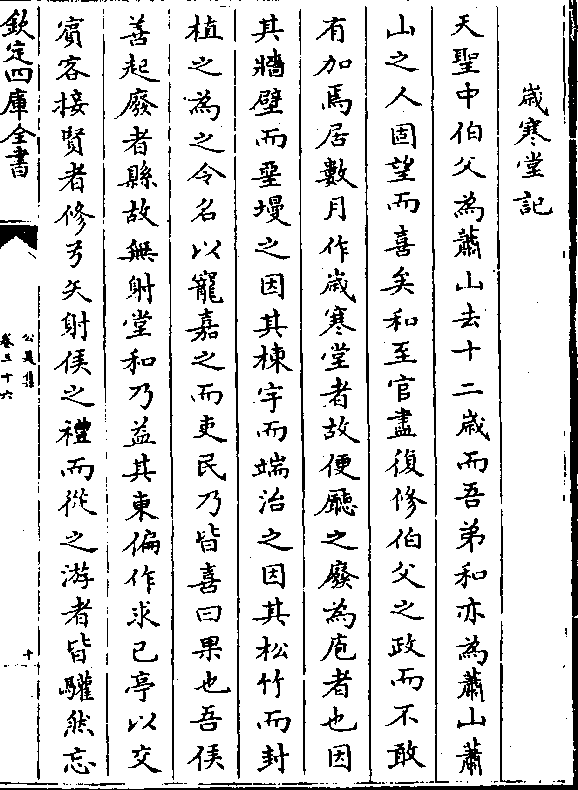 歲寒堂記
天聖中伯父為蕭山去十二歲而吾弟和亦為蕭山蕭
山之人固望而喜矣和至官盡復修伯父之政而不敢
有加焉居數月作歲寒堂者故便廳之廢為庖者也因
其牆壁而堊墁之因其棟宇而端治之因其松竹而封
植之為之令名以寵嘉之而吏民乃皆喜曰果也吾侯
善起廢者縣故無射堂和乃益其東偏作求已亭以交
賓客接賢者修弓矢射侯之禮而從之游者皆驩然忘
欽定四庫全書
公是集
卷三十六
十